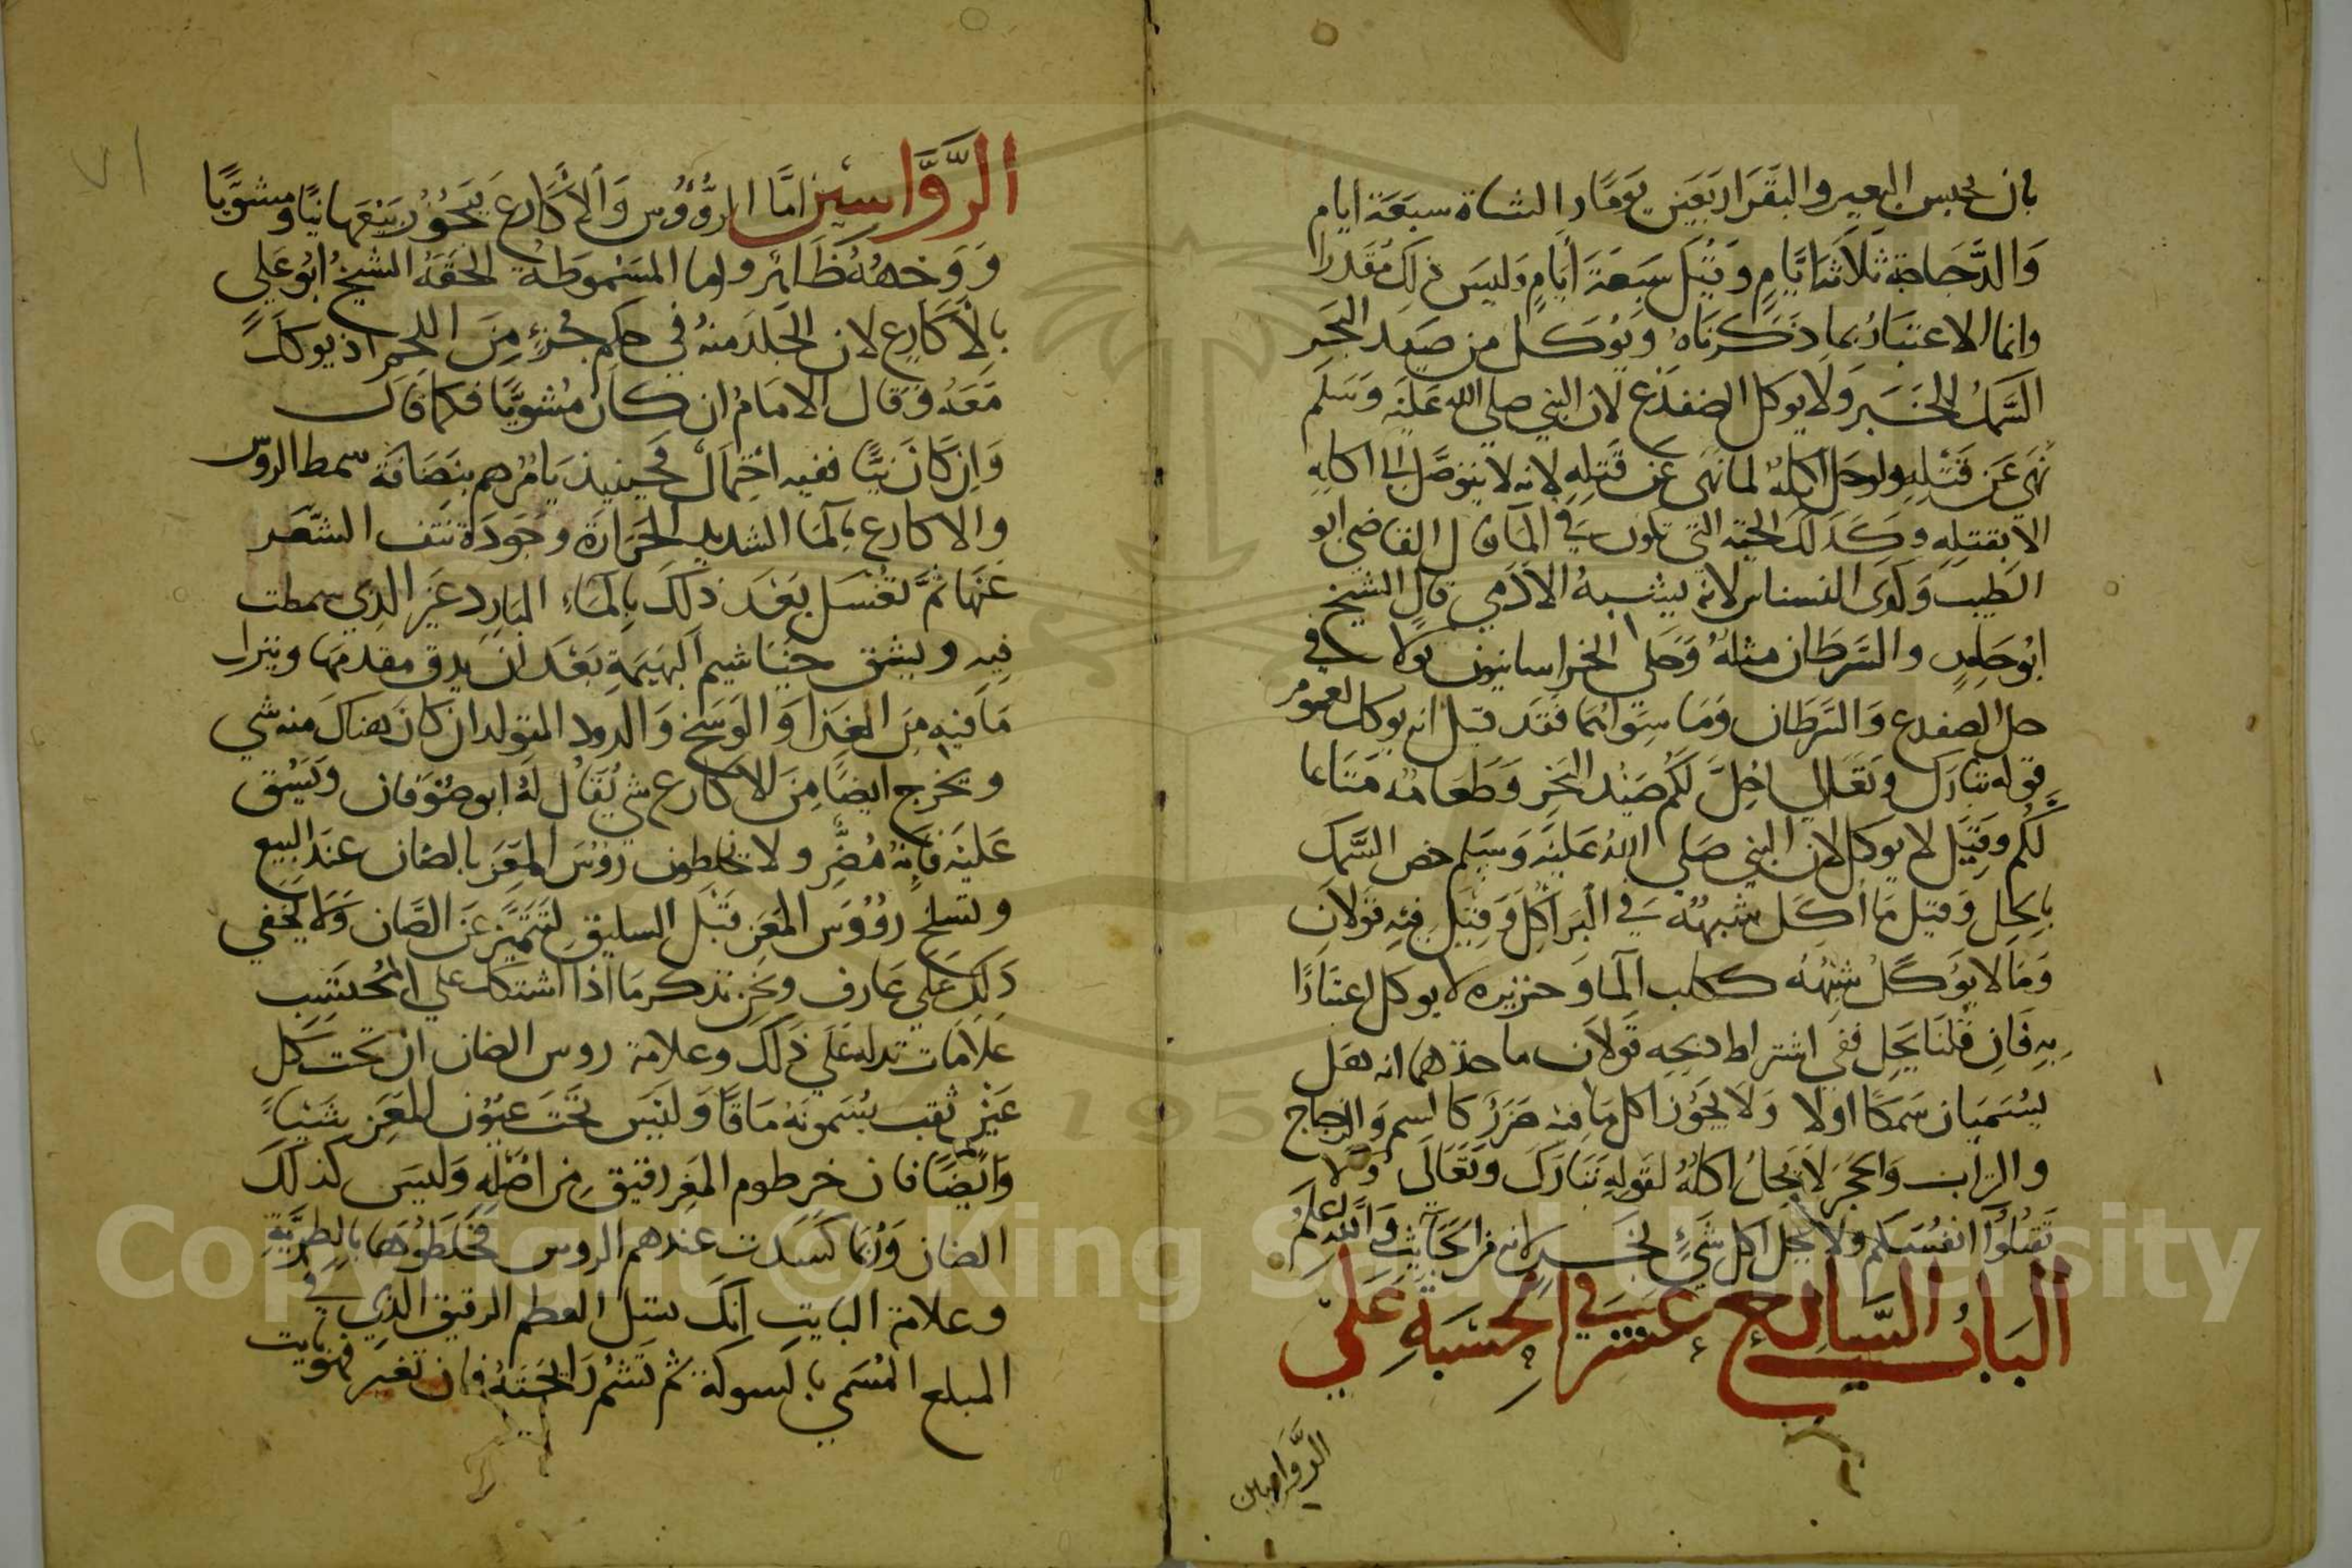 بان يحبس البعير والبقر اربعين يوما والشاة سبعة ايام
وَالدَّجَاجة ثلَاثة ايَّامٍ وَقيل سَبعَة أيامٍ وَليسَ ذلك مُقدرا
وانما الاعتبَارُ بما ذَكرنَاهُ وَيُوكل من صَيد البَحر
السَّمك للخَبر وَلَا يوكل الضفدع لان النبي صلى الله عَليْه وَسَلم
نهَي عَن قَتْلِهِ ولو حل اكلهُ لما نهى عَن قَتلِهِ لانه لا يتوصَّل الى اكلهِ
الا بقتلِهِ وكَذلك الحيّة التي تكون في المآ قال القاضي ابو
الطيبِ وَكَذى النسناس لانه يشبهُ الآدَمي قال الشيخ
ابُو حَامِدٍ والسَّرطَان مثلهُ وَحَكى الخراسانيون قولا في
حل الصفدع وَالسَّرطَان وَمَا سِوَاهُما فقد قيل انه يوكل لعموم
قوله تبَارَك وتَعَالى احُلَّ لَكُم صَيْدُ البَحْرِ وَطَعَامُهُ مَتَاعا
لَّكُم وَقيل لا يوكل لان النبي صَلى اللهُ عَليْه وَسَلم خص السَّمك
بالحِل وَقيل مَا أُكل شبهُهُ في البَر اكل وَقيل فيه قولَان
وَمَا لا يُؤكلُ شبهُه ككلب المآ وَخنزيره لا يوكل اعتبَارًا
بهِ فَانِ قلنَا يَحِل ففي اشتراط ذبحه قولَان ماخذهما انه هل
يسُمَيَان سَمَكًا اولا وَلَا يَجُوز اكل مَا فيه ضَرَرٌ كالسم وَالزجاج
والتراب وَالحجَر لَا يَحِلُ اكلهُ لقولهِ تَبَارَك وتَعَالَى وَلا
تَقتُلُوا انفُسَكم ولا يَحِل اكل شيءٍ نجَس لانه من الخَبَائث وَاللهُ اعلم
البَابُ السَّابع عشر في الحِسبَةِ عَلي
الروَّاسين
الرَّوَّاسين امَّا الرُّؤوُس وَالأكَارع يَجُوُز بَيعهَا نيًّا ومشويًا
وَوَجهُهُ ظَاهر واما المسَموطة الحقَهُ الشيخُ ابُو عَلي
بالأَكَارع لان الجَلدَ منهُ في حكم جُزءٍ مِنَ اللحم اذ يوكل
مَعَهُ وَقال الامَامُ ان كانَ مُشويًّا فكما قال
وَان كانَ نيًّا ففيه احتِمَالٌ فَحينيذ يَامُرهم بنَضَافَة سمط الروس
والاكارع بالمآ الشديد الحَرَارة وجَودَة نَتف الشَّعر
عَنهَا ثمَّ تغْسَل بَعْدَ ذلكَ بِالمَاءِ البَارد غَير الذي سمطت
فيه ويشق خيَاشيم البَهيمَةِ بَعْدَ ان يدق مقدمهَا وينزل
مَا فيه مِنَ القذا وَالوَسَخ وَالدود المتولد ان كانَ هناكَ منه شي
ويخرج ايضًا مِنَ الاكارع شي يُقَال لَهُ ابو صُوفان وَيَشُق
عَليه فَانهُ مُضرٌّ ولا يخلطون رُؤس المعَز بالضَان عندَ البيع
وتسلخ رُؤوُس المعَز قَبْل السليق لتَتَميَّز عَنِ الضَّان وَلَا يَخفي
ذَلِكَ عَلي عَارف ونَحن نذكر مَا اذا اشتكل علي المُحتسِب
عَلَامات تدله عَلي ذَلك وعلامة روس الضان ان تحت كل
عَيْن ثقب يُسَمونَهُ مَاقًا وَلَيسَ تَحْتَ عيُوُن المَعَز شَيئا
وَايضًا فان خرطوم المَعز رقيق من اصْلِهِ وَليسَ كذلكَ
الضان وَرُبَما كَسَدَت عندهم الروس فيخلطُوهَا بالطريَّةِ
وعلامة البايت انك تسل العظم الرقيق الذي في
المبلع المُسَمي بالسوكة ثم تَشُم رَائحتهُ فان تغيَر فهو بايت
٧١